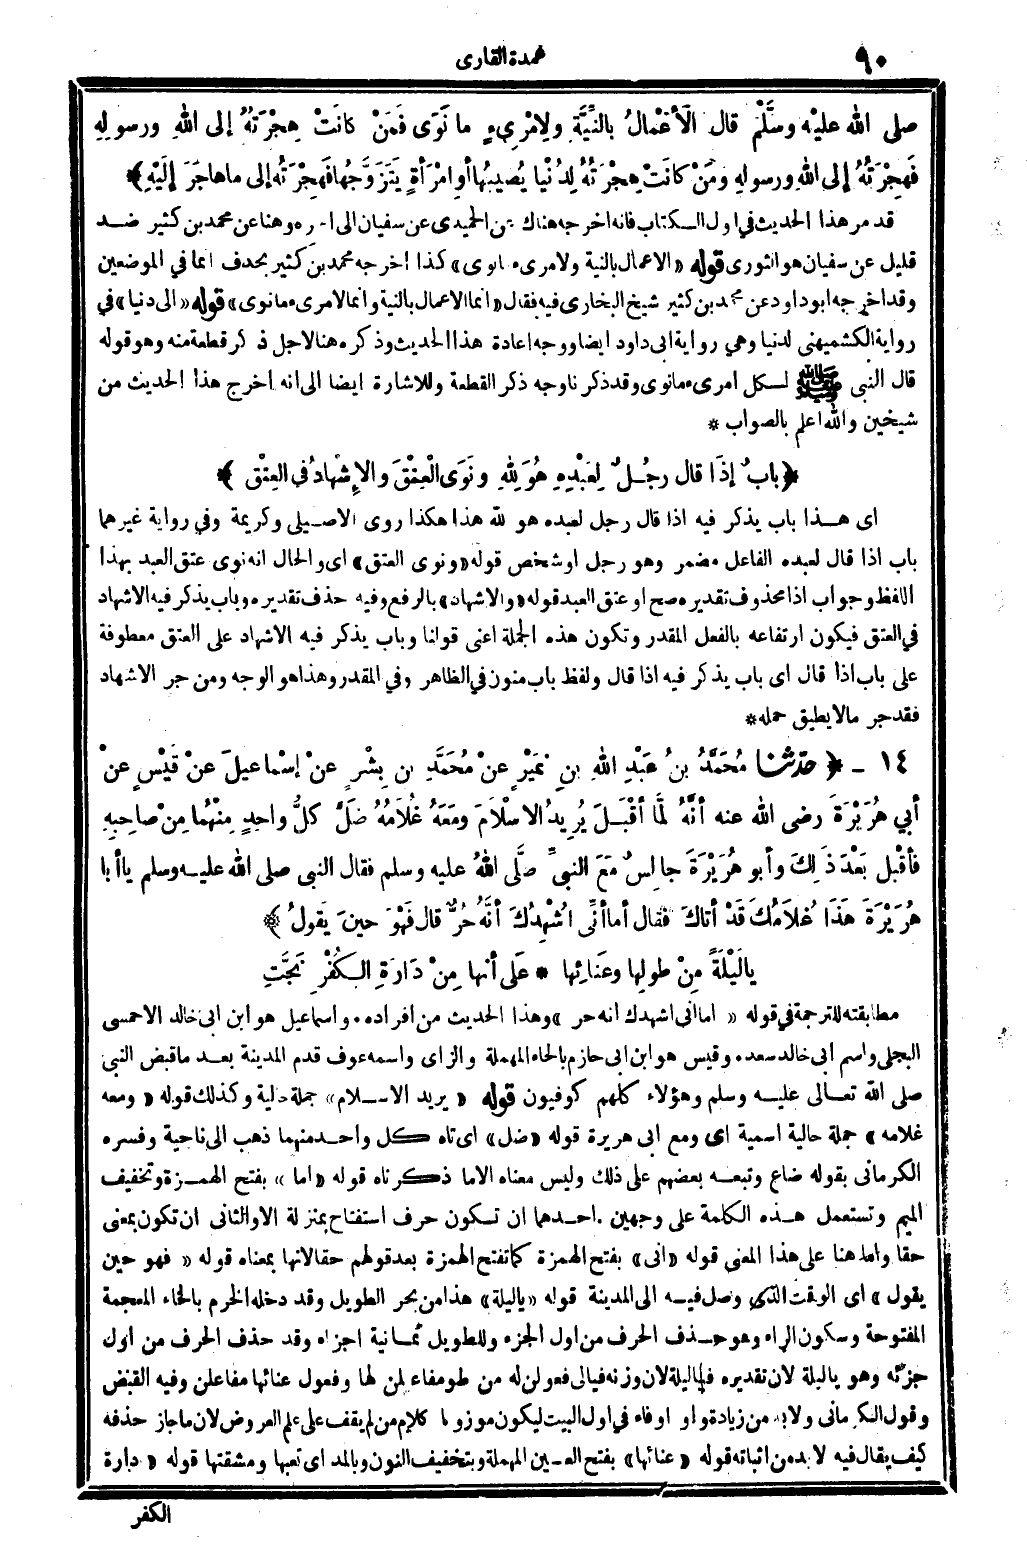 ٩٠
عمدة القارى
صلى الله عليْه وسَلَّمْ قال الَأعْمالُ بالنِّيَّةِ ولِامْرِيءٍ ما نَوَى فَمَنْ كانَتْ هِجْرَتُهُ إلى اللهِ ورسولِهِ
فَهِجْرَتُهُ إلى اللهِ ورسولِهِ ومَنْ كانَتْ هِجْرَتُهُ لِدُنْيا يُصيبُها أوِ امْرَأةٍ يَتَزَوَّجُها فَهِجْرَتُه إلى ما هاجَرَ إلَيْهِ ﴾
قد مر هذا الحديث في اول الكتاب فانه اخرجه هناك عن الحميدى عن سفيان الى اخره وهنا عن محمد بن كثير ضد
قليل عن سفيان هو الثورى قوله «الاعمال بالنية ولامرىء مانوى» كذا اخرجه محمد بن كثير بحذف انما في الموضعين
وقد اخرجه ابو داود عن محمد بن كثير شيخ البخارى فيه فقال «انما الاعمال بالنية وانما لامرىء مانوى» قوله «الى دنيا» في
رواية الكشميهنى لدنيا وهي رواية ابى داود ايضا ووجه اعادة هذا الحديث وذكره هنا لاجل ذكر قطعة منه وهو قوله
قال النبى ﷺ لكل امرىء مانوى وقد ذكرنا وجه ذكر القطعة وللاشارة ايضا الى انه اخرج هذا الحديث من
شيخين والله اعلم بالصواب *
﴿ بابٌ إذَا قال رجُلٌ لِعَبْدِهِ هُوَ لِلهِ ونَوَى الْعِتْقَ والإِشْهادُ في العِتْقِ ﴾
اى هذا باب يذكر فيه اذا قال رجل لعبده هو لله هذا هكذا روى الاصيلى وكريمة وفي رواية غيرهما
باب اذا قال لعبده الفاعل مضمر وهو رجل او شخص قوله «ونوى العتق» اى والحال انه نوى عتق العبد بهذا
اللفظ وجواب اذا محذوف تقديره صح او عتق العبد قوله «والاشهاد» بالرفع وفيه حذف تقديره وباب يذكر فيه الاشهاد
في العتق فيكون ارتفاعه بالفعل المقدر وتكون هذه الجملة اعنى قولنا وباب يذكر فيه الاشهاد على العتق معطوفة
على باب اذا قال اى باب يذكر فيه اذا قال ولفظ باب منون في الظاهر وفي المقدر وهذا هو الوجه ومن جر الاشهاد
فقد جر مالا يطيق حمله *
١٤ ـ ﴿ حَدَّثَنا مُحَمَّدُ بنُ عَبْدِ اللهِ بنِ نُمَيْرٍ عنْ مُحَمَّدِ بنِ بِشْرٍ عنْ إسْماعيلَ عنْ قَيْسٍ عنْ
أبي هُرَيْرَةَ رضى الله عنه أنَّهُ لَمَّا أقْبَلَ يُرِيدُ الاسْلَامَ ومَعَهُ غُلَامُهُ ضَلَّ كلُّ واحِدٍ مِنْهُما مِنْ صاحِبِهِ
فأقْبل بَعْدَ ذَلِكَ وأبو هُرَيْرَةَ جالِسٌ مَعَ النبيِّ صلَّى اللهُ عليه وسلم فقال النبى صلى الله عليه وسلم ياأبا
هُرَيْرَةَ هَذَا غُلَامُكَ قَدْ أتاكَ فقال أما أنِّي اُشْهِدُكَ أنَّهُ حُرٌّ قال فَهْوَ حينَ يَقولُ ﴾
يا لَيْلَةً مِنْ طولِها وعَنائِها * عَلى أنها مِنْ دَارَةِ الكُفْرِ نَجَّتِ
مطابقته للترجمة في قوله «اما انى اشهدك انه حر» وهذا الحديث من افراده. واسماعيل هو ابن ابى خالد الاحمسى
البجلى واسم ابى خالد سعد. وقيس هو ابن ابى حازم بالحاء المهملة والزاى واسمه عوف قدم المدينة بعد ما قبض النبى
صلى الله تعالى عليه وسلم وهؤلاء كلهم كوفيون قوله «يريد الاسلام» جملة حالية وكذلك قوله «ومعه
غلامه» جملة حالية اسمية اى ومع ابى هريرة قوله «ضل» اى تاه كل واحد منهما ذهب الى ناحية وفسره
الكرمانى بقوله ضاع وتبعه بعضهم على ذلك وليس معناه الا ما ذكرناه قوله «اما» بفتح الهمزة وتخفيف
الميم وتستعمل هذه الكلمة على وجهين. احدهما ان تكون حرف استفتاح بمنزلة الا والثانى ان تكون بمعنى
حقا واما هنا على هذا المعنى قوله «انى» بفتح الهمزة كما تفتح الهمزة بعد قولهم حقا لانها بمعناه قوله «فهو حين
يقول» اى الوقت الذى وصل فيه الى المدينة قوله «ياليلة» هذا من بحر الطويل وقد دخله الخرم بالخاء المعجمة
المفتوحة وسكون الراء وهو حذف الحرف من اول الجزء وللطويل ثمانية اجزاء وقد حذف الحرف من اول
جزئه وهو ياليلة لان تقديره فياليلة لان وزنه فيالى فعولن له من طو مفاعلن لها وفعول عنائها مفاعلن وفيه القبض
وقول الكرمانى ولابد من زيادة واو او فاء في اول البيت ليكون موزونا كلام من لم يقف على علم العروض لان ما جاز حذفه
كيف يقال فيه لابد من اثباته قوله «عنائها» بفتح العين المهملة وبتخفيف النون وبالمد اى تعبها ومشقتها قوله «دارة
الكفر